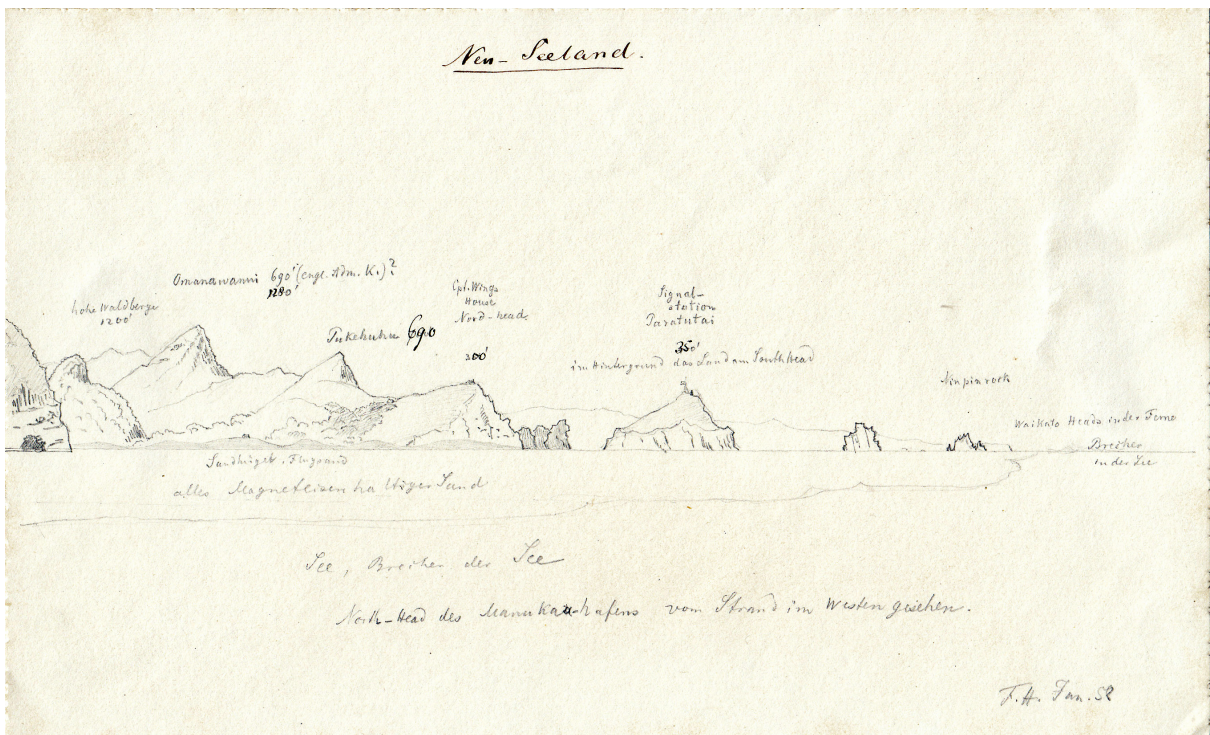 Neu-Seeland.
Omanawanui 690' (engl. Adm. K.)?
1280'
hohe Waldberge
1200'
Pukehuhu 690
Cpt. Wings
House
Nord-head
200'
Signal-
station
Paratutai
350'
im Hintergrund das Land am Southhead
Ninpin rock
Waikato Heads in der Ferne
Brecher
in der See
Sandhügel, Flugsand
alles Magneteisenhaltiger Sand
See, Brecher der See
North-Head des Manukau-hafens vom Strand im Westen gesehen.
F.H. Jan. 59